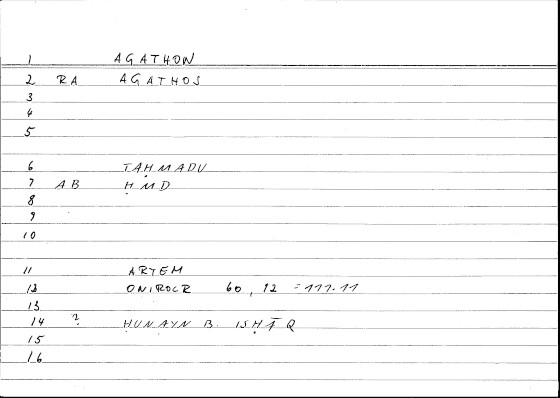 1 AGATHON
2 RA AGATHOS
3
4
5
6 TAḤMADU
7 AB ḤMD
8
9
10
11 ARTEM
12 ONIROCR 60, 12 = 111.11
13
14 ? ḤUNAYN B. ISḤĀQ
15
16